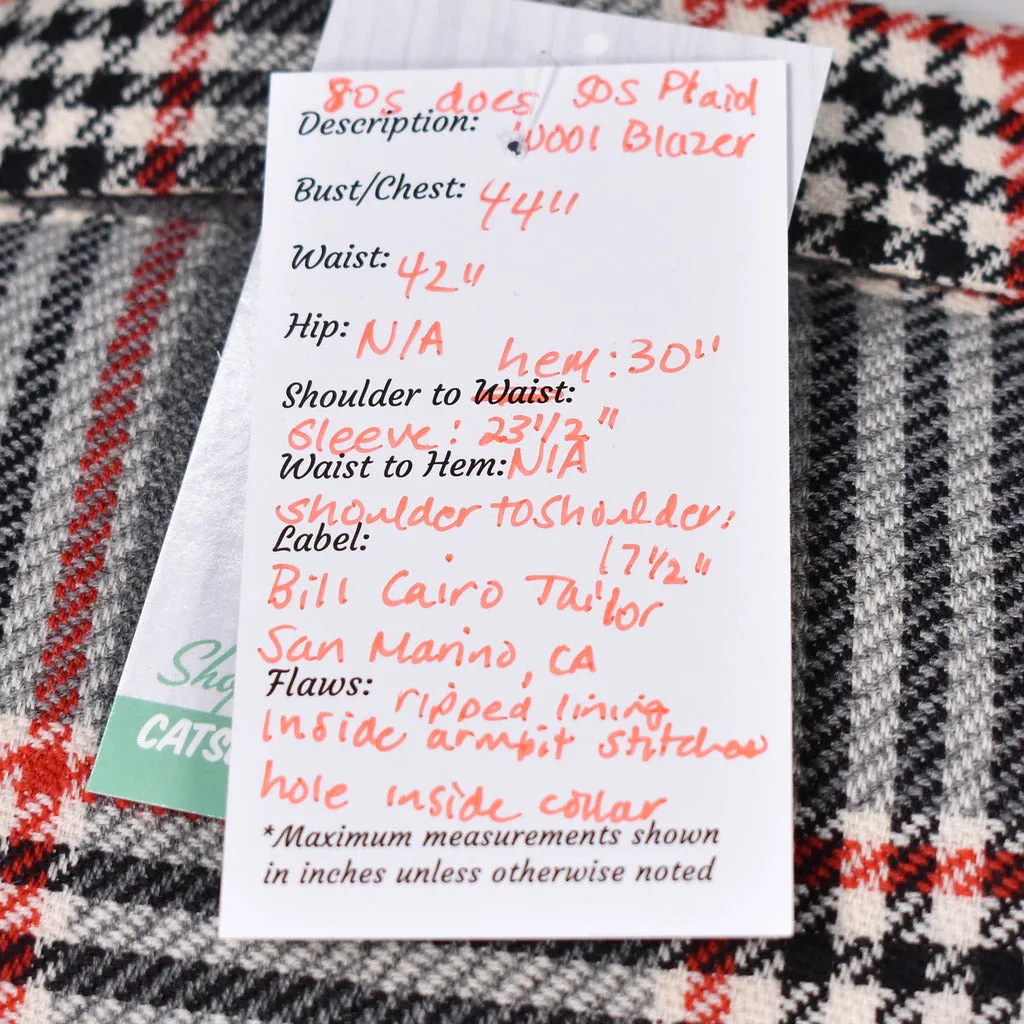 80s does 50s Plaid
Description: Wool Blazer
Bust/Chest: 44"
Waist: 42"
Hip: N/A
hem: 30"
Shoulder to Waist:
sleeve: 23 1/2"
Waist to Hem: N/A
shoulder to shoulder:
17 1/2"
Label:
Bill Cairo Tailor
San Marino, CA
Flaws: ripped lining
inside armpit stitches
hole inside collar
*Maximum measurements shown
in inches unless otherwise noted
CATS